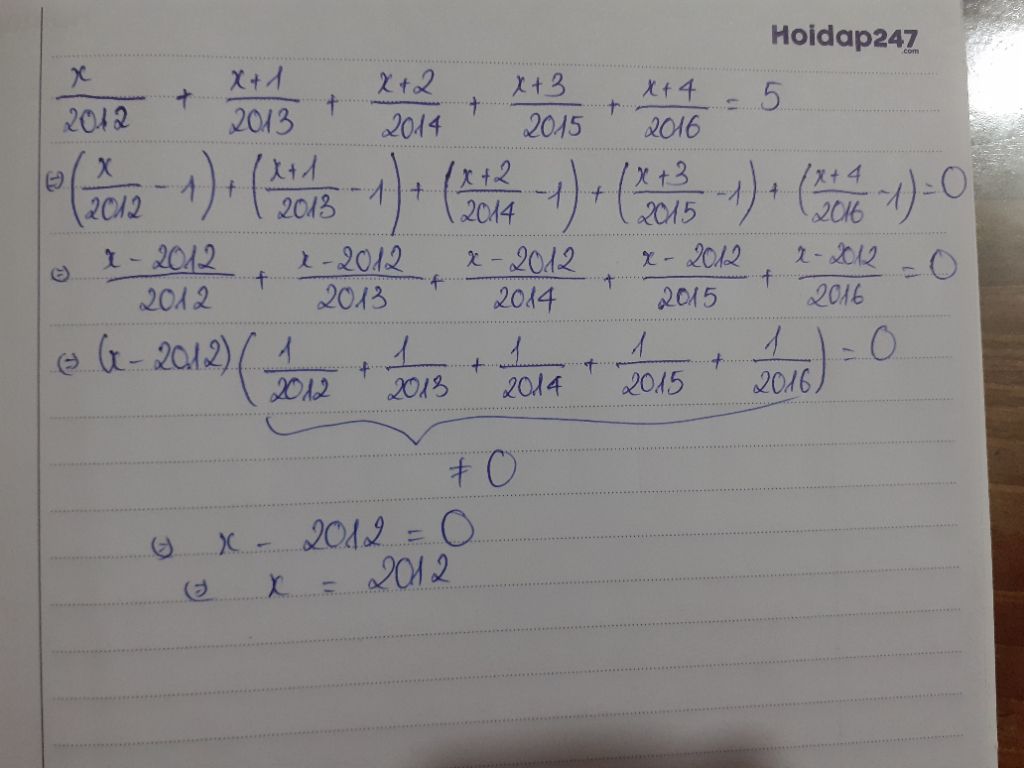 Hoidap247
.com
x/2012 + x+1/2013 + x+2/2014 + x+3/2015 + x+4/2016 = 5
⇔ (x/2012 - 1) + (x+1/2013 - 1) + (x+2/2014 - 1) + (x+3/2015 - 1) + (x+4/2016 - 1) = 0
⇔ x - 2012/2012 + x - 2012/2013 + x - 2012/2014 + x - 2012/2015 + x - 2012/2016 = 0
⇔ (x - 2012)(1/2012 + 1/2013 + 1/2014 + 1/2015 + 1/2016) = 0
≠ 0
⇔ x - 2012 = 0
⇔ x = 2012